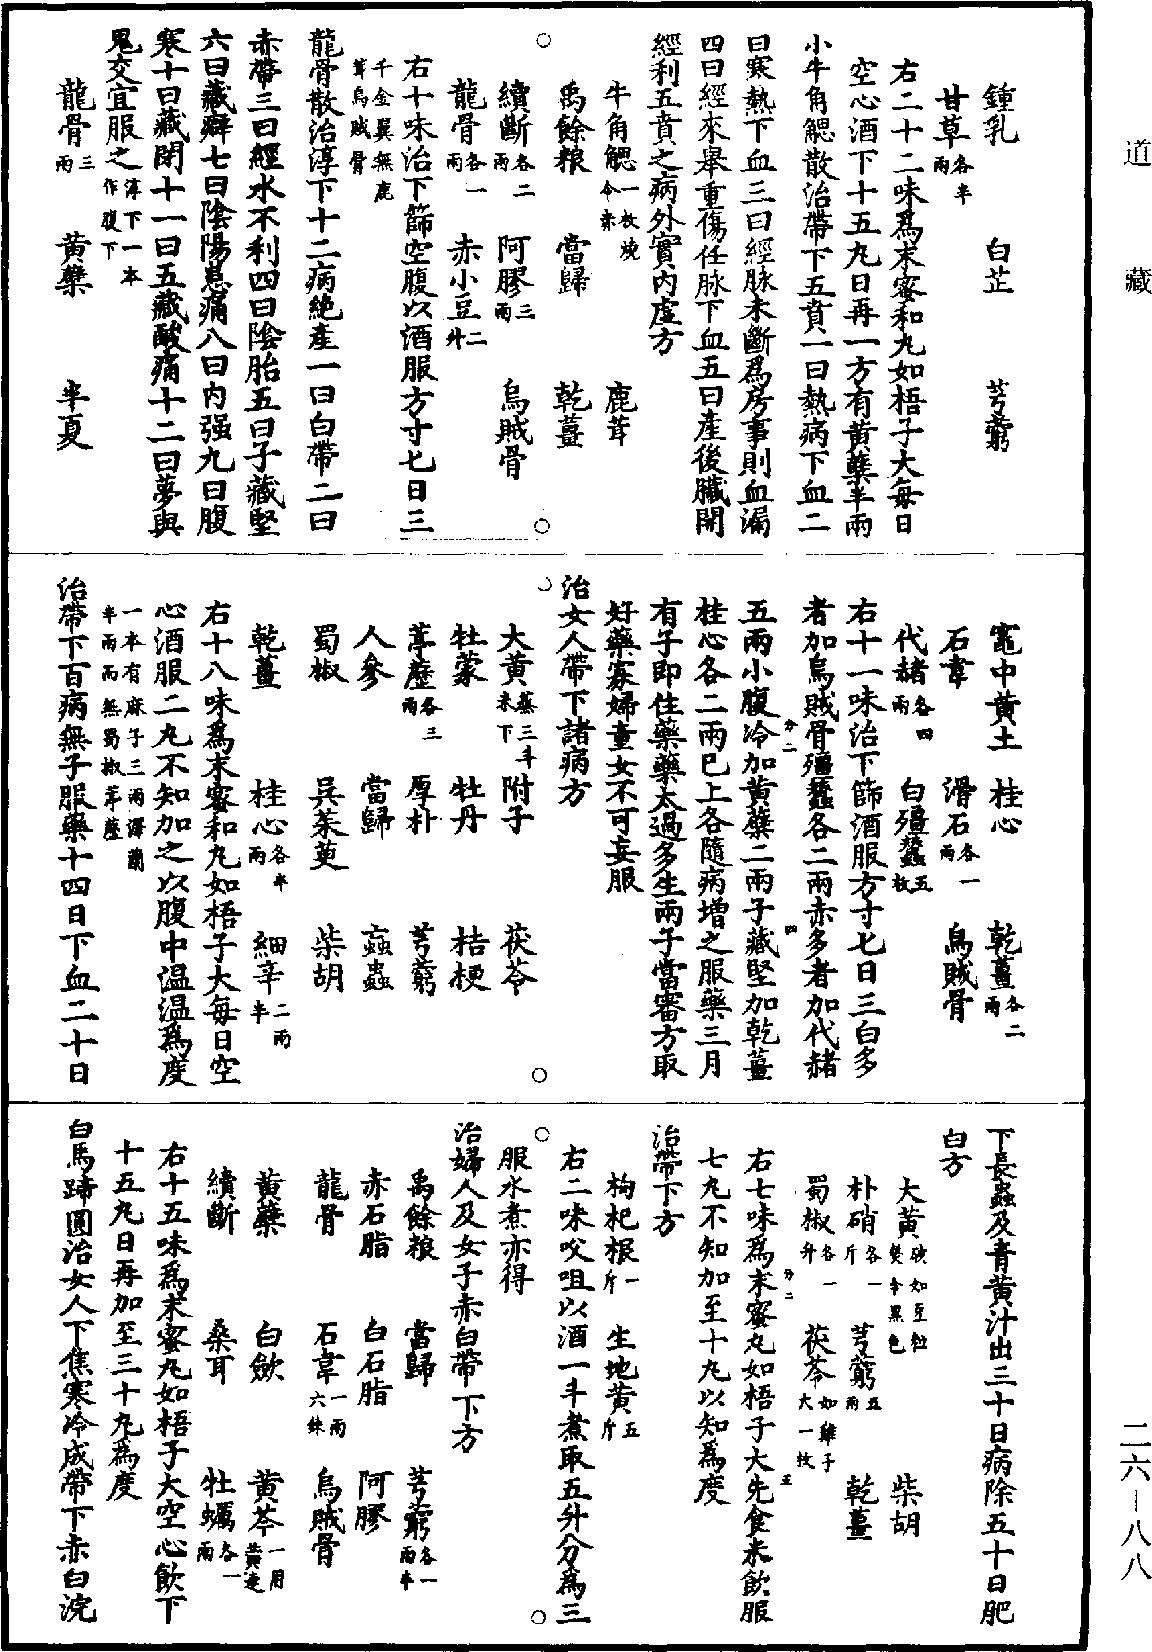 道藏
鍾乳　白芷　芎藭
甘草各半兩
右二十二味爲末蜜和丸如梧子大每日
空心酒下十五丸日再一方有黄蘗半兩
小牛角䚡散治帶下五賁一曰熱病下血二
曰寒熱下血三曰經脉未斷爲房事則血漏
四曰經來舉重傷任脉下血五曰產後臟開
經利五賁之病外實内虚方
牛角䚡一枚燒令赤　鹿茸
禹餘粮　當歸　乾薑
續斷各二兩　阿膠三兩　烏賊骨
龍骨各一兩　赤小豆二升
右十味治下篩空腹以酒服方寸匕日三
千金翼無鹿茸烏賊骨
龍骨散治淳下十二病絶產一曰白帶二曰
赤帶三曰經水不利四曰陰胎五曰子藏堅
六曰藏癖七曰陰陽患痛八曰内强九曰腹
寒十曰藏閉十一曰五藏酸痛十二曰夢與
鬼交宜服之淳下一本作腹下
龍骨三兩　黄蘗　半夏
竈中黄土　桂心　乾薑各二兩
石韋　滑石各一兩　烏賊骨
代赭各四兩　白殭蠶五枚
右十一味治下篩酒服方寸匕日三白多
者加烏賊骨殭蠶各二兩赤多者加代赭
五兩小腹冷加黄蘗二兩子藏堅加乾薑
桂心各二兩已上各隨病增之服藥三月
有子即住藥藥太過多生兩子當審方取
好藥寡婦童女不可妄服
治女人帶下諸病方
大黄蒸三斗米下　附子　茯苓
牡蒙　牡丹　桔梗
葶藶各三兩　厚朴　芎藭
人參　當歸　䗪蟲
蜀椒　吳茱萸　柴胡
乾薑　桂心各半兩　細辛二兩半
右十八味爲末蜜和丸如梧子大每日空
心酒服二丸不知加之以腹中温温爲度
一本有麻子三兩澤蘭半兩而無蜀椒葶藶
治帶下百病無子服藥十四日下血二十日
下長蟲及青黄汁出三十日病除五十日肥
白方
大黄破如豆粒熬令黑色　柴胡
朴硝各一斤　芎藭五兩　乾薑
蜀椒各一升　茯苓如雞子大一枚
右七味爲末蜜丸如梧子大先食米飲服
七丸不知加至十丸以知爲度
治帶下方
枸杞根一斤　生地黄五斤
右二味㕮咀以酒一斗煮取五升分爲三
服水煮亦得
治婦人及女子赤白帶下方
禹餘粮　當歸　芎藭各一兩半
赤石脂　白石脂　阿膠
龍骨　石韋一兩六銖　烏賊骨
黄蘗　白歛　黄芩一用黄連
續斷　桑耳　牡蠣各一兩
右十五味爲末蜜丸如梧子大空心飲下
十五丸日再加至三十丸爲度
白馬蹄圓治女人下焦寒冷成帶下赤白浣
二六—八八